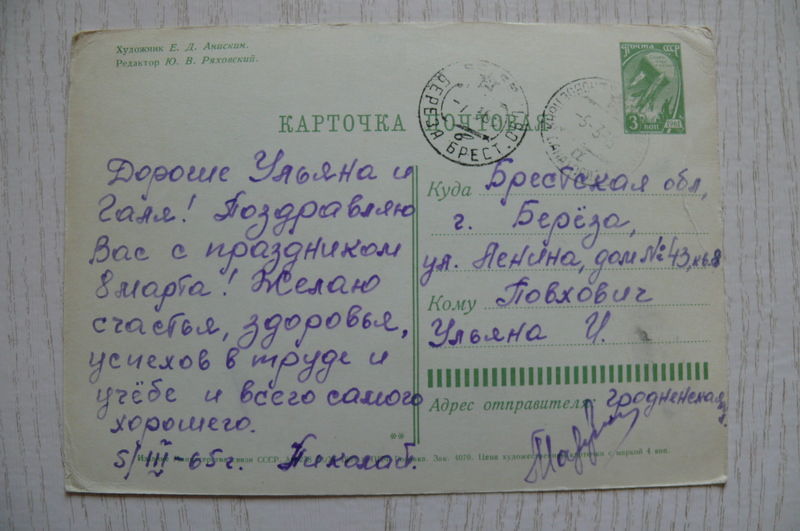 Художник Е. Д. Анискин.
Редактор Ю. В. Ряховский.
ПОЧТА СССР
3 коп
1961
БЕРЕЗА БРЕСТ.
КАРТОЧКА ПОЧТОВАЯ
Дорогие Ульяна и
Галя! Поздравляю
Вас с праздником
8 марта! Желаю
счастья, здоровья,
успехов в труде и
учёбе и всего самого
хорошего.
5/III 65 г. Николай.
Куда Брестская обл,
г. Берёза,
ул. Ленина, дом № 43, кв. 8
Кому Повхович
Ульяна И.
Адрес отправителя: Гродненская
**
связи СССР, Зак. 4070. Цена художественной карточки с маркой 4 коп.